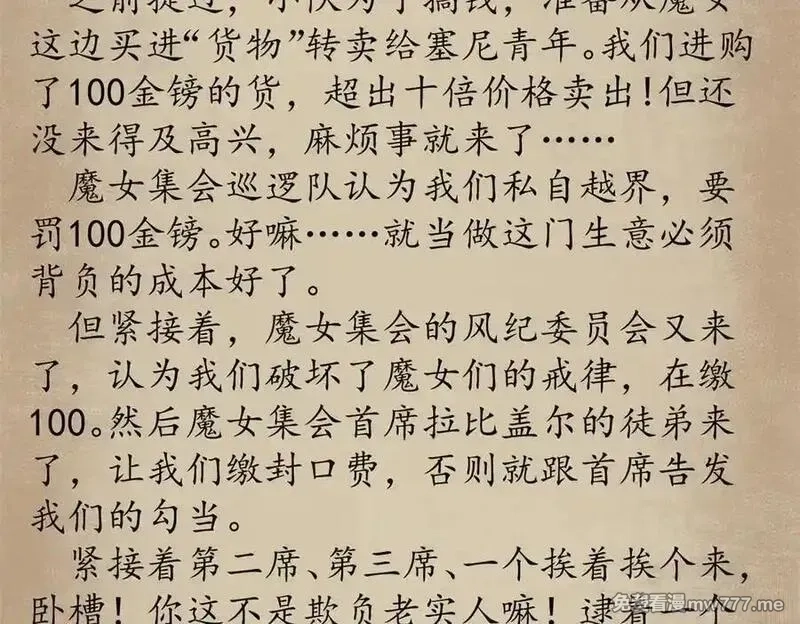 之前提过，小队为了搞钱，准备从魔女
这边买进“货物”转卖给塞尼青年。我们进购
了100金镑的货，超出十倍价格卖出！但还
没来得及高兴，麻烦事就来了……
魔女集会巡逻队认为我们私自越界，要
罚100金镑。好嘛……就当做这门生意必须
背负的成本好了。
但紧接着，魔女集会的风纪委员会又来
了，认为我们破坏了魔女们的戒律，在缴
100。然后魔女集会首席拉比盖尔的徒弟来
了，让我们缴封口费，否则就跟首席告发
我们的勾当。
紧接着第二席、第三席、一个挨着挨个来，
卧槽！你这不是欺负老实人嘛！逮着一个
免费看漫mw777.me